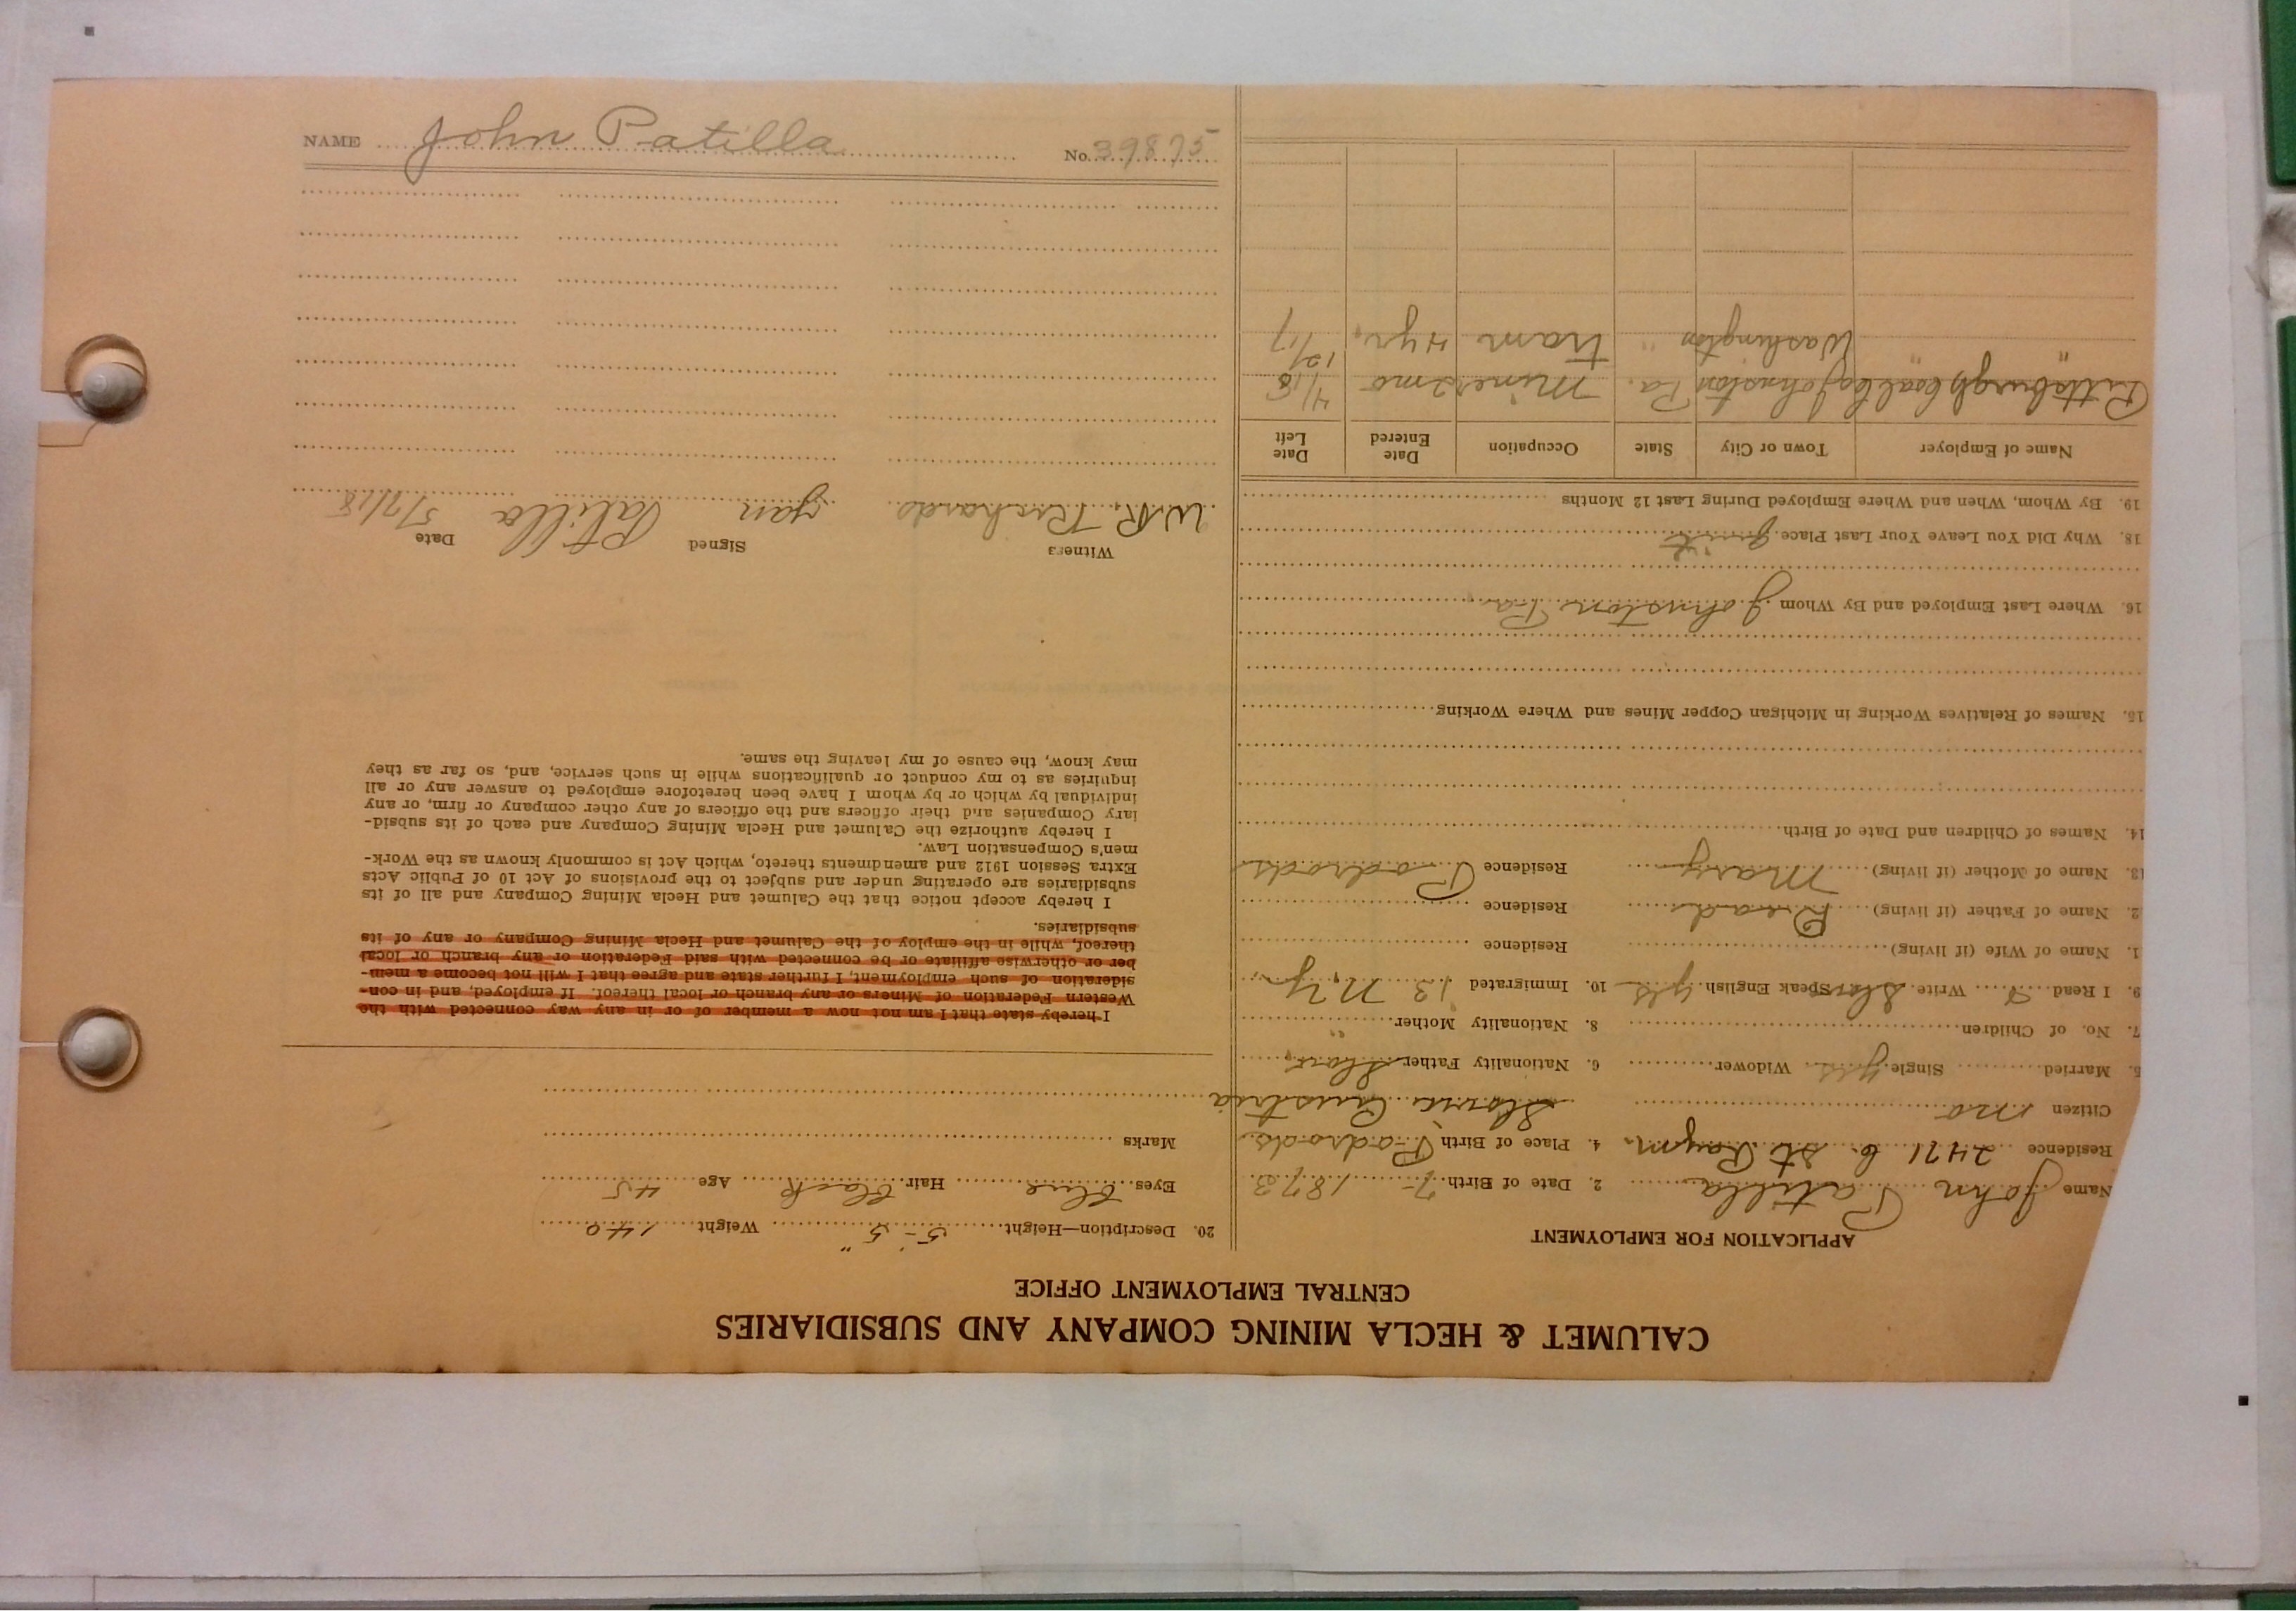 CALUMET & HECLA MINING COMPANY AND SUBSIDIARIES
CENTRAL EMPLOYMENT OFFICE
APPLICATION FOR EMPLOYMENT
Name John Patilla 2. Date of Birth 7- 1873
Residence 2471 B. St Raym. 4. Place of Birth Podrods
Citizen no Slovic Austria
5. Married Single yes Widower 6. Nationality Father Slov
7. No. of Children 8. Nationality Mother "
9. I Read Write Slav Speak English yes 10. Immigrated 13 N.Y.
1. Name of Wife (if living) Residence
2. Name of Father (if living) Dead Residence
13. Name of Mother (if living) Mary Residence Podrods
14. Names of Children and Date of Birth
15. Names of Relatives Working in Michigan Copper Mines and Where Working
16. Where Last Employed and By Whom Johnston Pa.
18. Why Did You Leave Your Last Place quit
19. By Whom, When and Where Employed During Last 12 Months
Name of Employer Town or City State Occupation Date Entered Date Left
Pittsburgh Coal Co Johnston Pa. Miner 2mo 4/18
" " Washington " tram 4 yr. 12/17
20. Description—Height 5'-5" Weight 140
Eyes Blue Hair Black Age 45
Marks
I hereby state that I am not now a member of or in any way connected with the
Western Federation of Miners or any branch or local thereof. If employed, and in con-
sideration of such employment, I further state and agree that I will not become a mem-
ber or otherwise affiliate or be connected with said Federation or any branch or local
thereof, while in the employ of the Calumet and Hecla Mining Company or any of its
subsidiaries.
I hereby accept notice that the Calumet and Hecla Mining Company and all of its
subsidiaries are operating under and subject to the provisions of Act 10 of Public Acts
Extra Session 1912 and amendments thereto, which Act is commonly known as the Work-
men's Compensation Law.
I hereby authorize the Calumet and Hecla Mining Company and each of its subsid-
iary Companies and their officers and the officers of any other company or firm, or any
individual by which or by whom I have been heretofore employed to answer any or all
inquiries as to my conduct or qualifications while in such service, and, so far as they
may know, the cause of my leaving the same.
Witness Signed Date
W.R. Richards. Jan Patilla 5/7/18
NAME John Patilla No. 39875